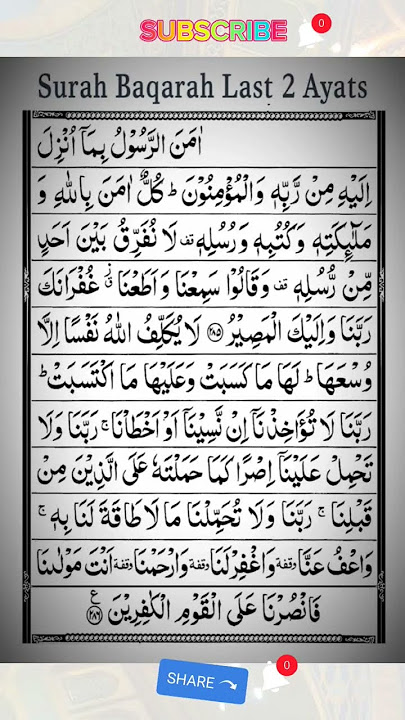 SUBSCRIBE
0
Surah Baqarah Last 2 Ayats
اٰمَنَ الرَّسُوْلُ بِمَاۤ اُنْزِلَ
اِلَيْهِ مِنْ رَّبِّهٖ وَالْمُؤْمِنُوْنَ ؕ كُلٌّ اٰمَنَ بِاللّٰهِ وَ
مَلٰٓئِكَتِهٖ وَكُتُبِهٖ وَرُسُلِهٖ قف لَا نُفَرِّقُ بَيْنَ اَحَدٍ
مِّنْ رُّسُلِهٖ قف وَقَالُوْا سَمِعْنَا وَاَطَعْنَا ۫ غُفْرَانَكَ
رَبَّنَا وَاِلَيْكَ الْمَصِيْرُ ﴿۲۸۵﴾ لَا يُكَلِّفُ اللّٰهُ نَفْسًا اِلَّا
وُسْعَهَا ؕ لَهَا مَا كَسَبَتْ وَعَلَيْهَا مَا اكْتَسَبَتْ ؕ
رَبَّنَا لَا تُؤَاخِذْنَاۤ اِنْ نَّسِيْنَاۤ اَوْ اَخْطَاْنَا ۚ رَبَّنَا وَلَا
تَحْمِلْ عَلَيْنَاۤ اِصْرًا كَمَا حَمَلْتَهٗ عَلَى الَّذِيْنَ مِنْ
قَبْلِنَا ۚ رَبَّنَا وَلَا تُحَمِّلْنَا مَا لَا طَاقَةَ لَنَا بِهٖ ۚ
وَاعْفُ عَنَّا وقفة وَاغْفِرْ لَنَا وقفة وَارْحَمْنَا وقفة اَنْتَ مَوْلٰىنَا
فَانْصُرْنَا عَلَى الْقَوْمِ الْكٰفِرِيْنَ ﴿۲۸۶﴾ ع
SHARE
0